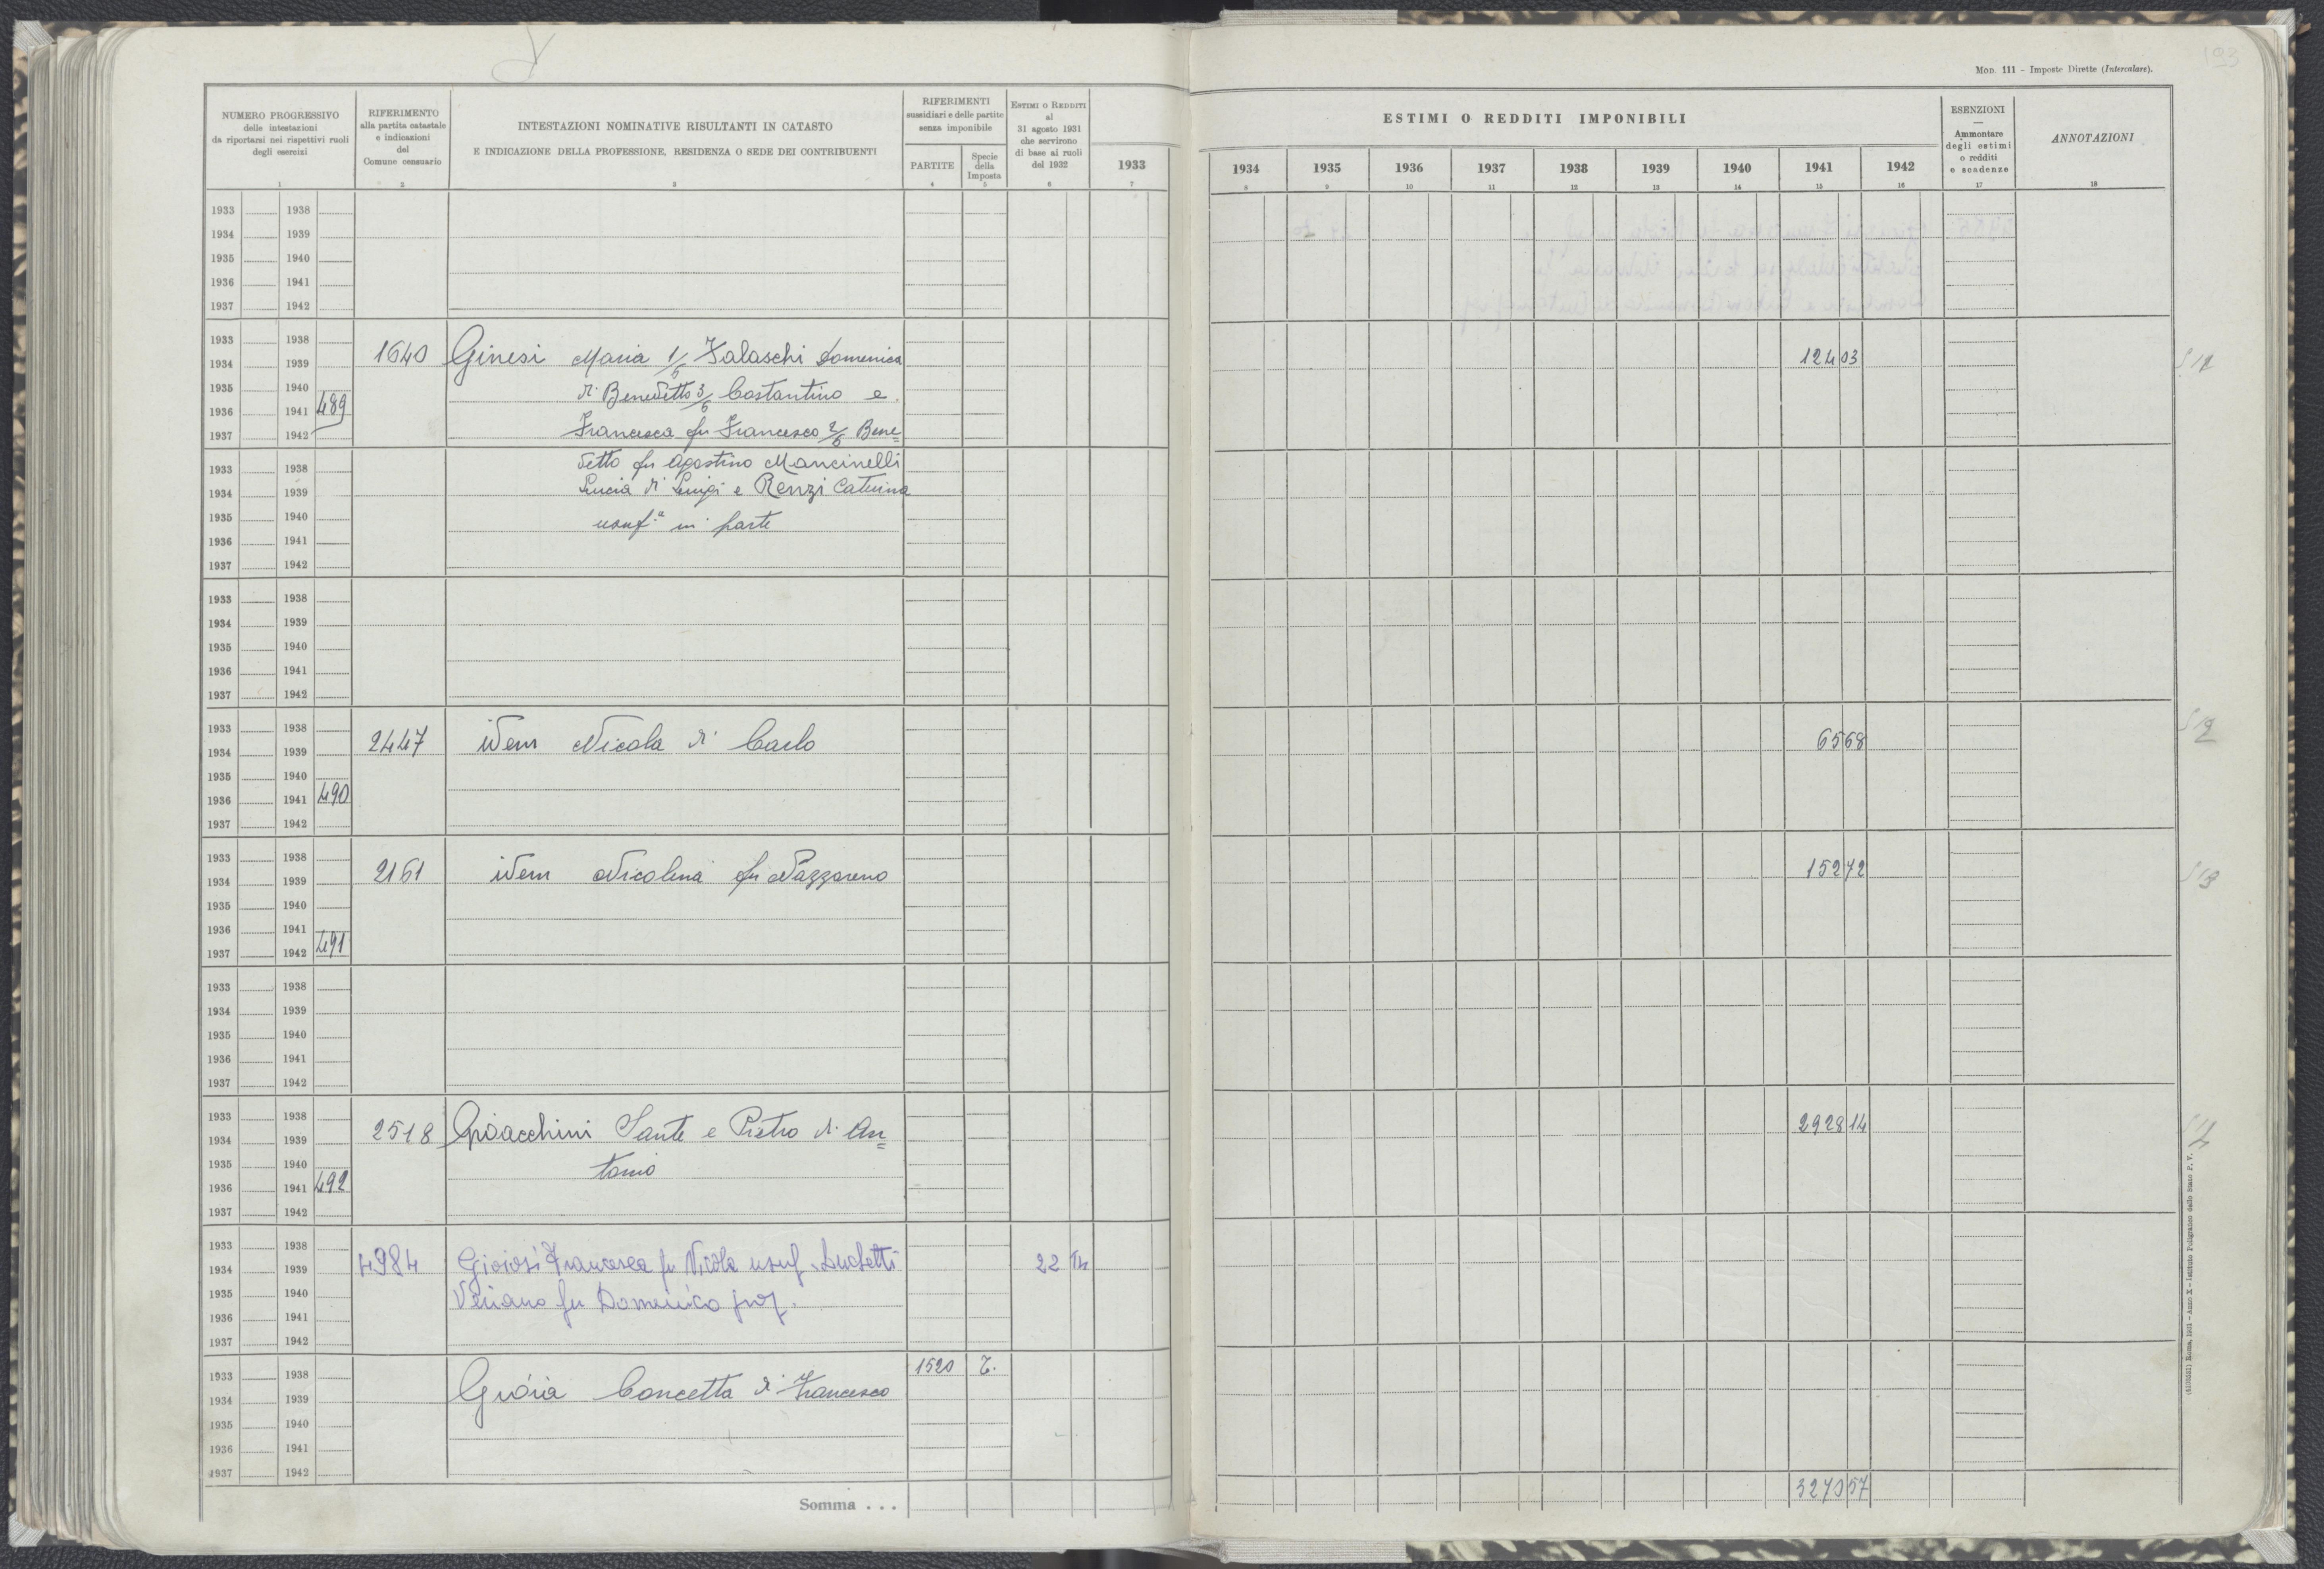 193
Mod. 111 – Imposte Dirette (Intercalare).
NUMERO PROGRESSIVO
delle intestazioni
da riportarsi nei rispettivi ruoli
degli esercizi
1
RIFERIMENTO
alla partita catastale
e indicazioni
del
Comune censuario
2
INTESTAZIONI NOMINATIVE RISULTANTI IN CATASTO
E INDICAZIONE DELLA PROFESSIONE, RESIDENZA O SEDE DEI CONTRIBUENTI
3
RIFERIMENTI
sussidiari e delle partite
senza imponibile
PARTITE
4
Specie
della
Imposta
5
ESTIMI O REDDITI
al
31 agosto 1931
che servirono
di base ai ruoli
del 1932
6
1933
7
ESTIMI O REDDITI IMPONIBILI
1934 1935 1936 1937 1938 1939 1940 1941 1942
8 9 10 11 12 13 14 15 16
ESENZIONI
—
Ammontare
degli estimi
o redditi
e scadenze
17
ANNOTAZIONI
18
1933 1938
1934 1939
1935 1940
1936 1941
1937 1942
1933 1938
1934 1939 1640 Ginesi Maria 1/6 Falaschi Domenica 124 03
1935 1940 di Benedetto 3/6 Costantino e
1936 1941 489
1937 1942 Francesca fu Francesco 2/6 Bene=
1933 1938 detto fu Agostino Mancinelli
1934 1939 Lucia di Luigi e Renzi Caterina
1935 1940 usuf.a in parte
1936 1941
1937 1942
1933 1938
1934 1939
1935 1940
1936 1941
1937 1942
1933 1938
1934 1939 2447 idem Nicola di Carlo 65 68
1935 1940
1936 1941 490
1937 1942
1933 1938
1934 1939 2161 idem Nicolina fu Nazzareno 152 72
1935 1940
1936 1941
1937 1942 491
1933 1938
1934 1939
1935 1940
1936 1941
1937 1942
1933 1938
1934 1939 2518 Gioacchini Sante e Pietro di An= 2928 14
1935 1940 tonio
1936 1941 492
1937 1942
1933 1938
1934 1939 4984 Gioiosi Francesca fu Nicola usuf. Luchetti 22
1935 1940 Veriano fu Domenico prop.
1936 1941
1937 1942
1933 1938 1520 T.
1934 1939 Gioia Concetta di Francesco
1935 1940
1936 1941
1937 1942
Somma . . . 3270 57
Roma, 1931 – Anno X – Istituto Poligrafico dello Stato P. V.